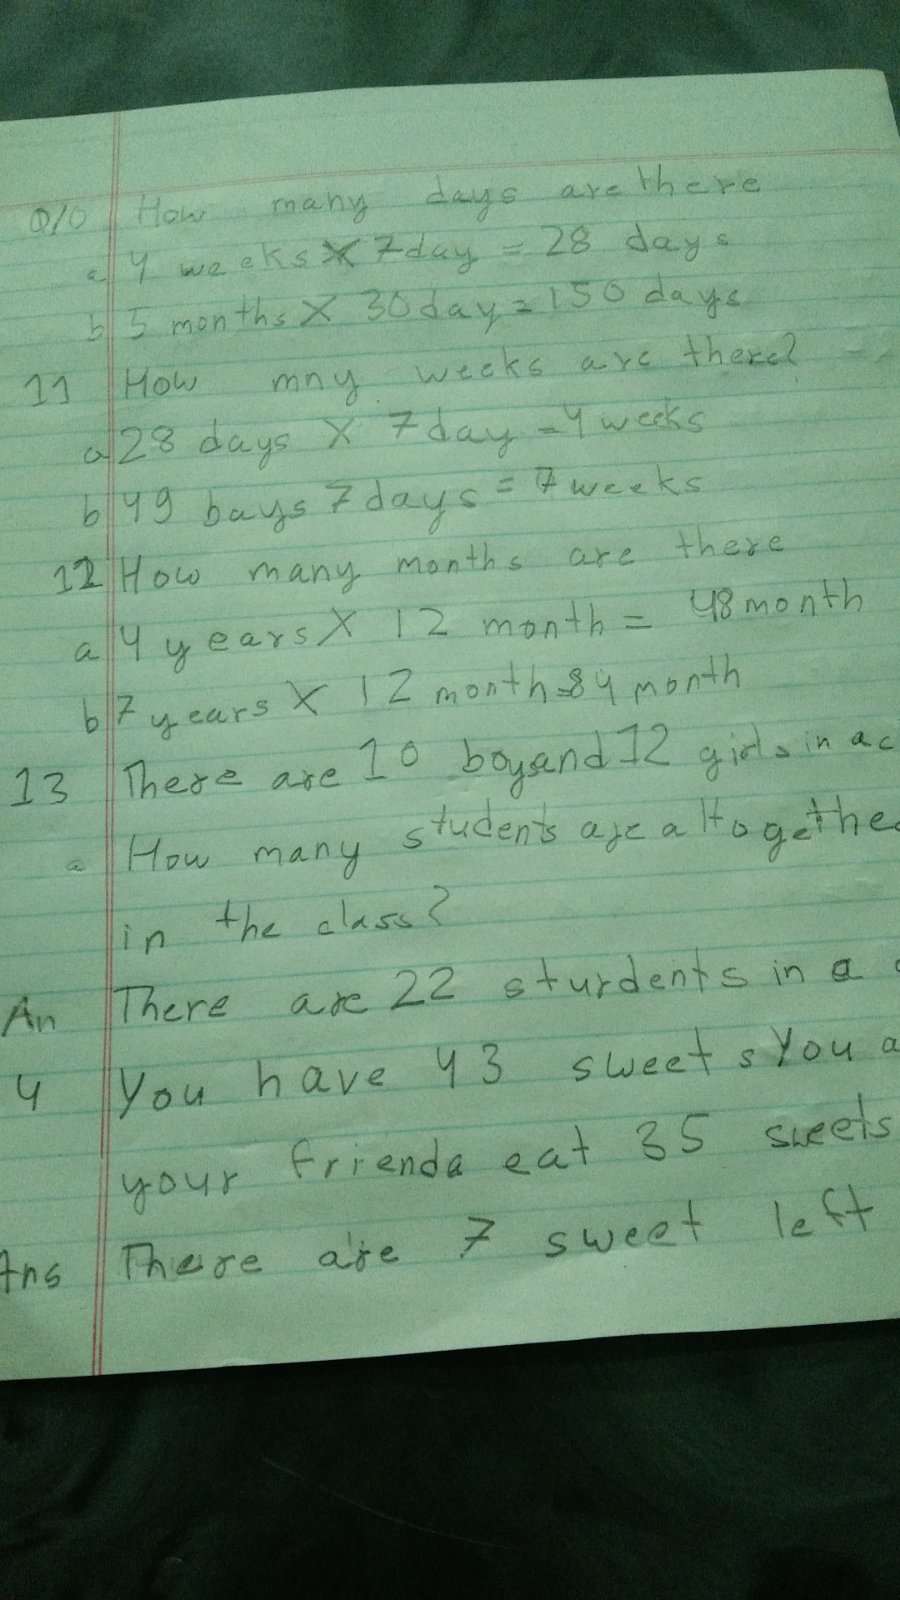 Q10 How many days are there
a 4 weeks X 7day = 28 days
b 5 months X 30day = 150 days
11 How mny weeks are there?
a 28 days X 7day = 4 weeks
b 49 bays 7days = 7 weeks
12 How many months are there
a 4 years X 12 month = 48 month
b 7 years X 12 month = 84 month
13 There are 10 boysand 12 girls in a c
a How many students are altogethe
in the class?
An There are 22 sturdents in a
4 You have 43 sweets You a
your friends eat 35 sweets
Ans There are 7 sweet left